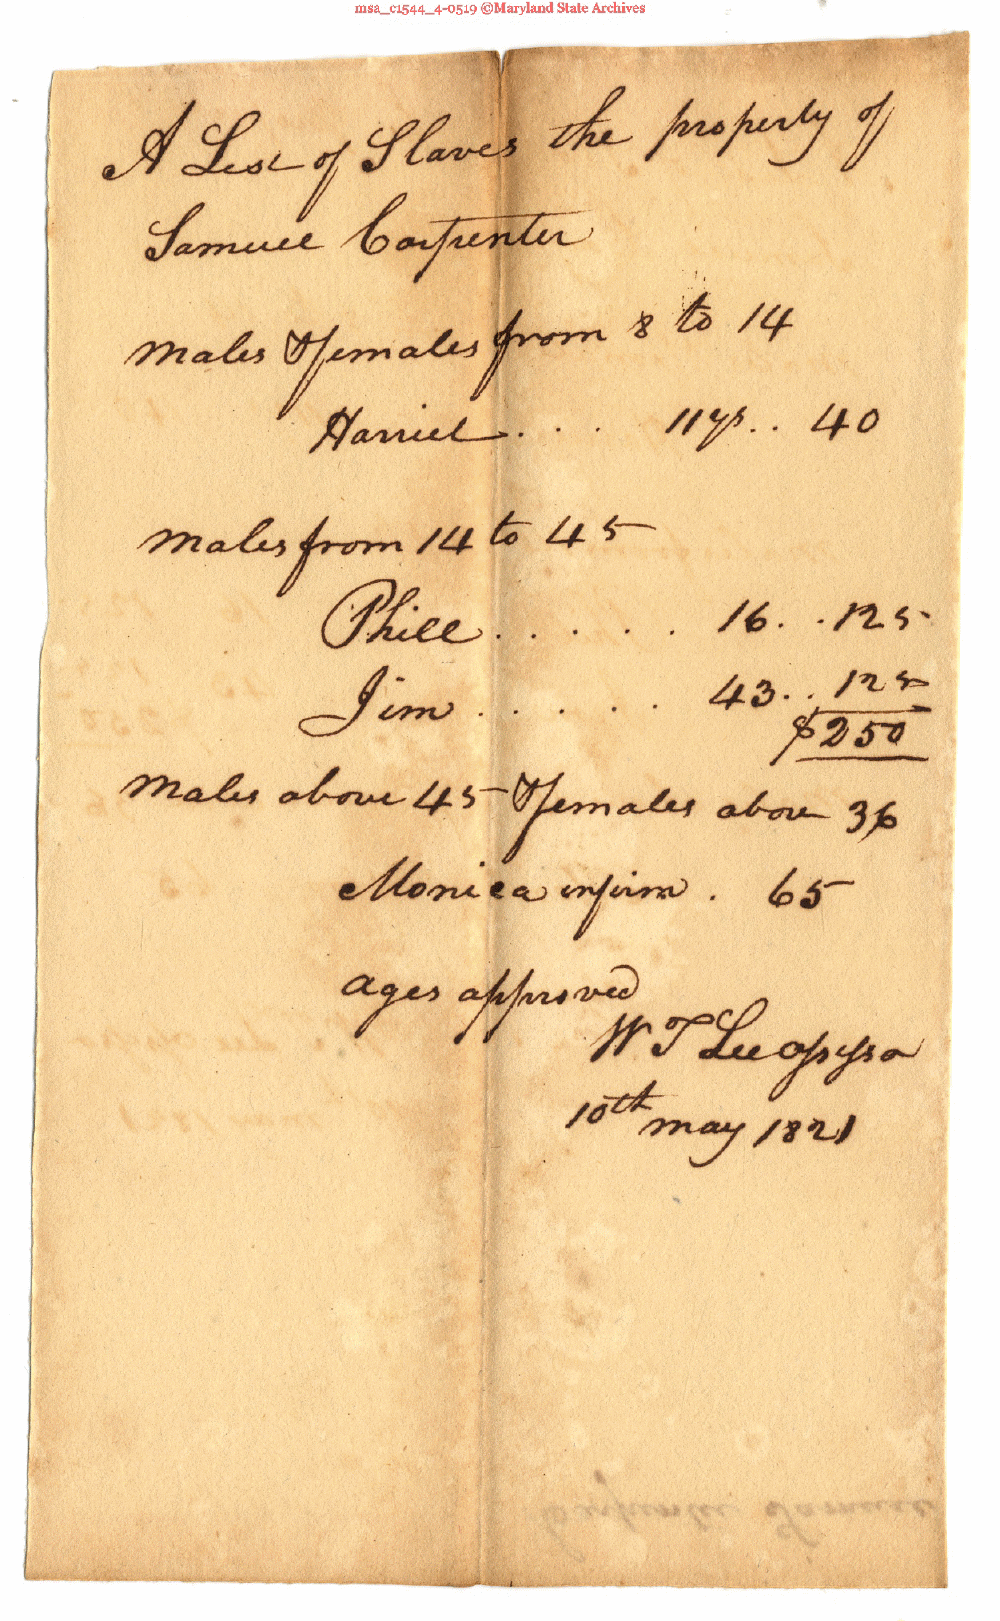 msa_c1544_4-0519 ©Maryland State Archives
A List of Slaves the property of
Samuel Carpenter
Males & females from 8 to 14
Harriet . . . . 11 ys . . 40
Males from 14 to 45
Phill . . . . . 16 . . 125
Jim . . . . . 43 . . 125
$250
Males above 45 & females above 36
Monica infirm . 65
ages approved
W T Lee assessor
10th may 1821